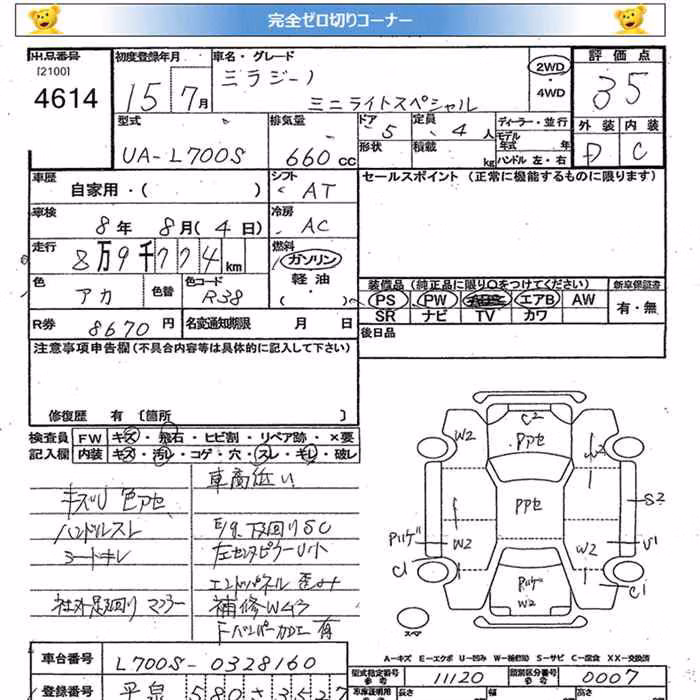 完全ゼロ切りコーナー
出品番号
[2100]
4614
初度登録年月
15 7月
車名・グレード
ミラジーノ
ミニライトスペシャル
2WD
・
4WD
評価点
35
型式
UA-L700S
排気量
660cc
ドア
5
形状
定員
4人
積載
kg
ディーラー・並行
モデル
年式 年
ハンドル 左・右
外装 内装
D C
車歴
自家用・( )
シフト
AT
セールスポイント (正常に機能するものに限ります)
車検
8年 8月(4日)
冷房
AC
走行
8万9千774km
燃料
ガソリン
軽油
( )
色
アカ
色替
色コード
R38
装備品 (純正品に限り○をつけてください)
PS PW ABS エアB AW
SR ナビ TV カワ
新車保証書
有・無
R券 8670円
名変通知期限 月 日
後日品
注意事項申告欄(不具合内容等は具体的に記入して下さい)
修復歴 有 〔箇所 〕
検査員 FW キズ・飛石・ヒビ割・リペア跡・×要
記入欄 内装 キズ・汚レ・コゲ・穴・スレ・キレ・破レ
車高低い
キズU 色アセ
ハンドルスレ
E/g、下回りSC
シートキレ
左センタピラーU小
エンドパネル歪
社外足回り マフラー
補修W43
Fバンパー加工有
C2
Pアセ
W2
W2
PPアセ
S2
Pハゲ
W2
W2
U1
C1
Pハゲ
W2
C1
スペア
A-キズ E-エクボ U-凹み W-補修跡 S-サビ C-腐食 XX-交換済
車台番号
L700S-0328160
型式指定番号
参考
11120
類別区分番号
参考
0007
登録番号
平泉 580 さ 3527
車庫証明用
長さ
幅
高さ